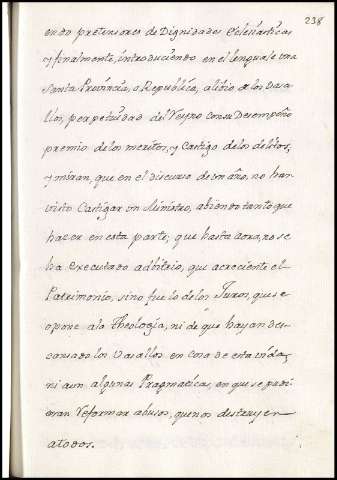 238
endo pretensores de Dignidades Eclesiasticas
y finalmente, introduciendo en el lenguaje una
santa Provincia, o Republica, alivio de los Vasa-
llos, perpetuidad del Reyno con su Desempeño
premio de los meritos, y Castigo de los delitos,
y miran, que en el discurso de un año, no han
visto Castigar un Ministro, abiendo tanto que
hacer en esta parte; que hasta aora, no se
ha executado adbitrio, que acreciente el
Patrimonio, sino fue lo de los Juros, que se
opone ala Theología, ni de que hayan des-
cansado los Vasallos en cosa de esta vida,
ni aun algunas Pragmaticas, en que se pudi
eran Reformar abusos, que nos destruyen
atodos.